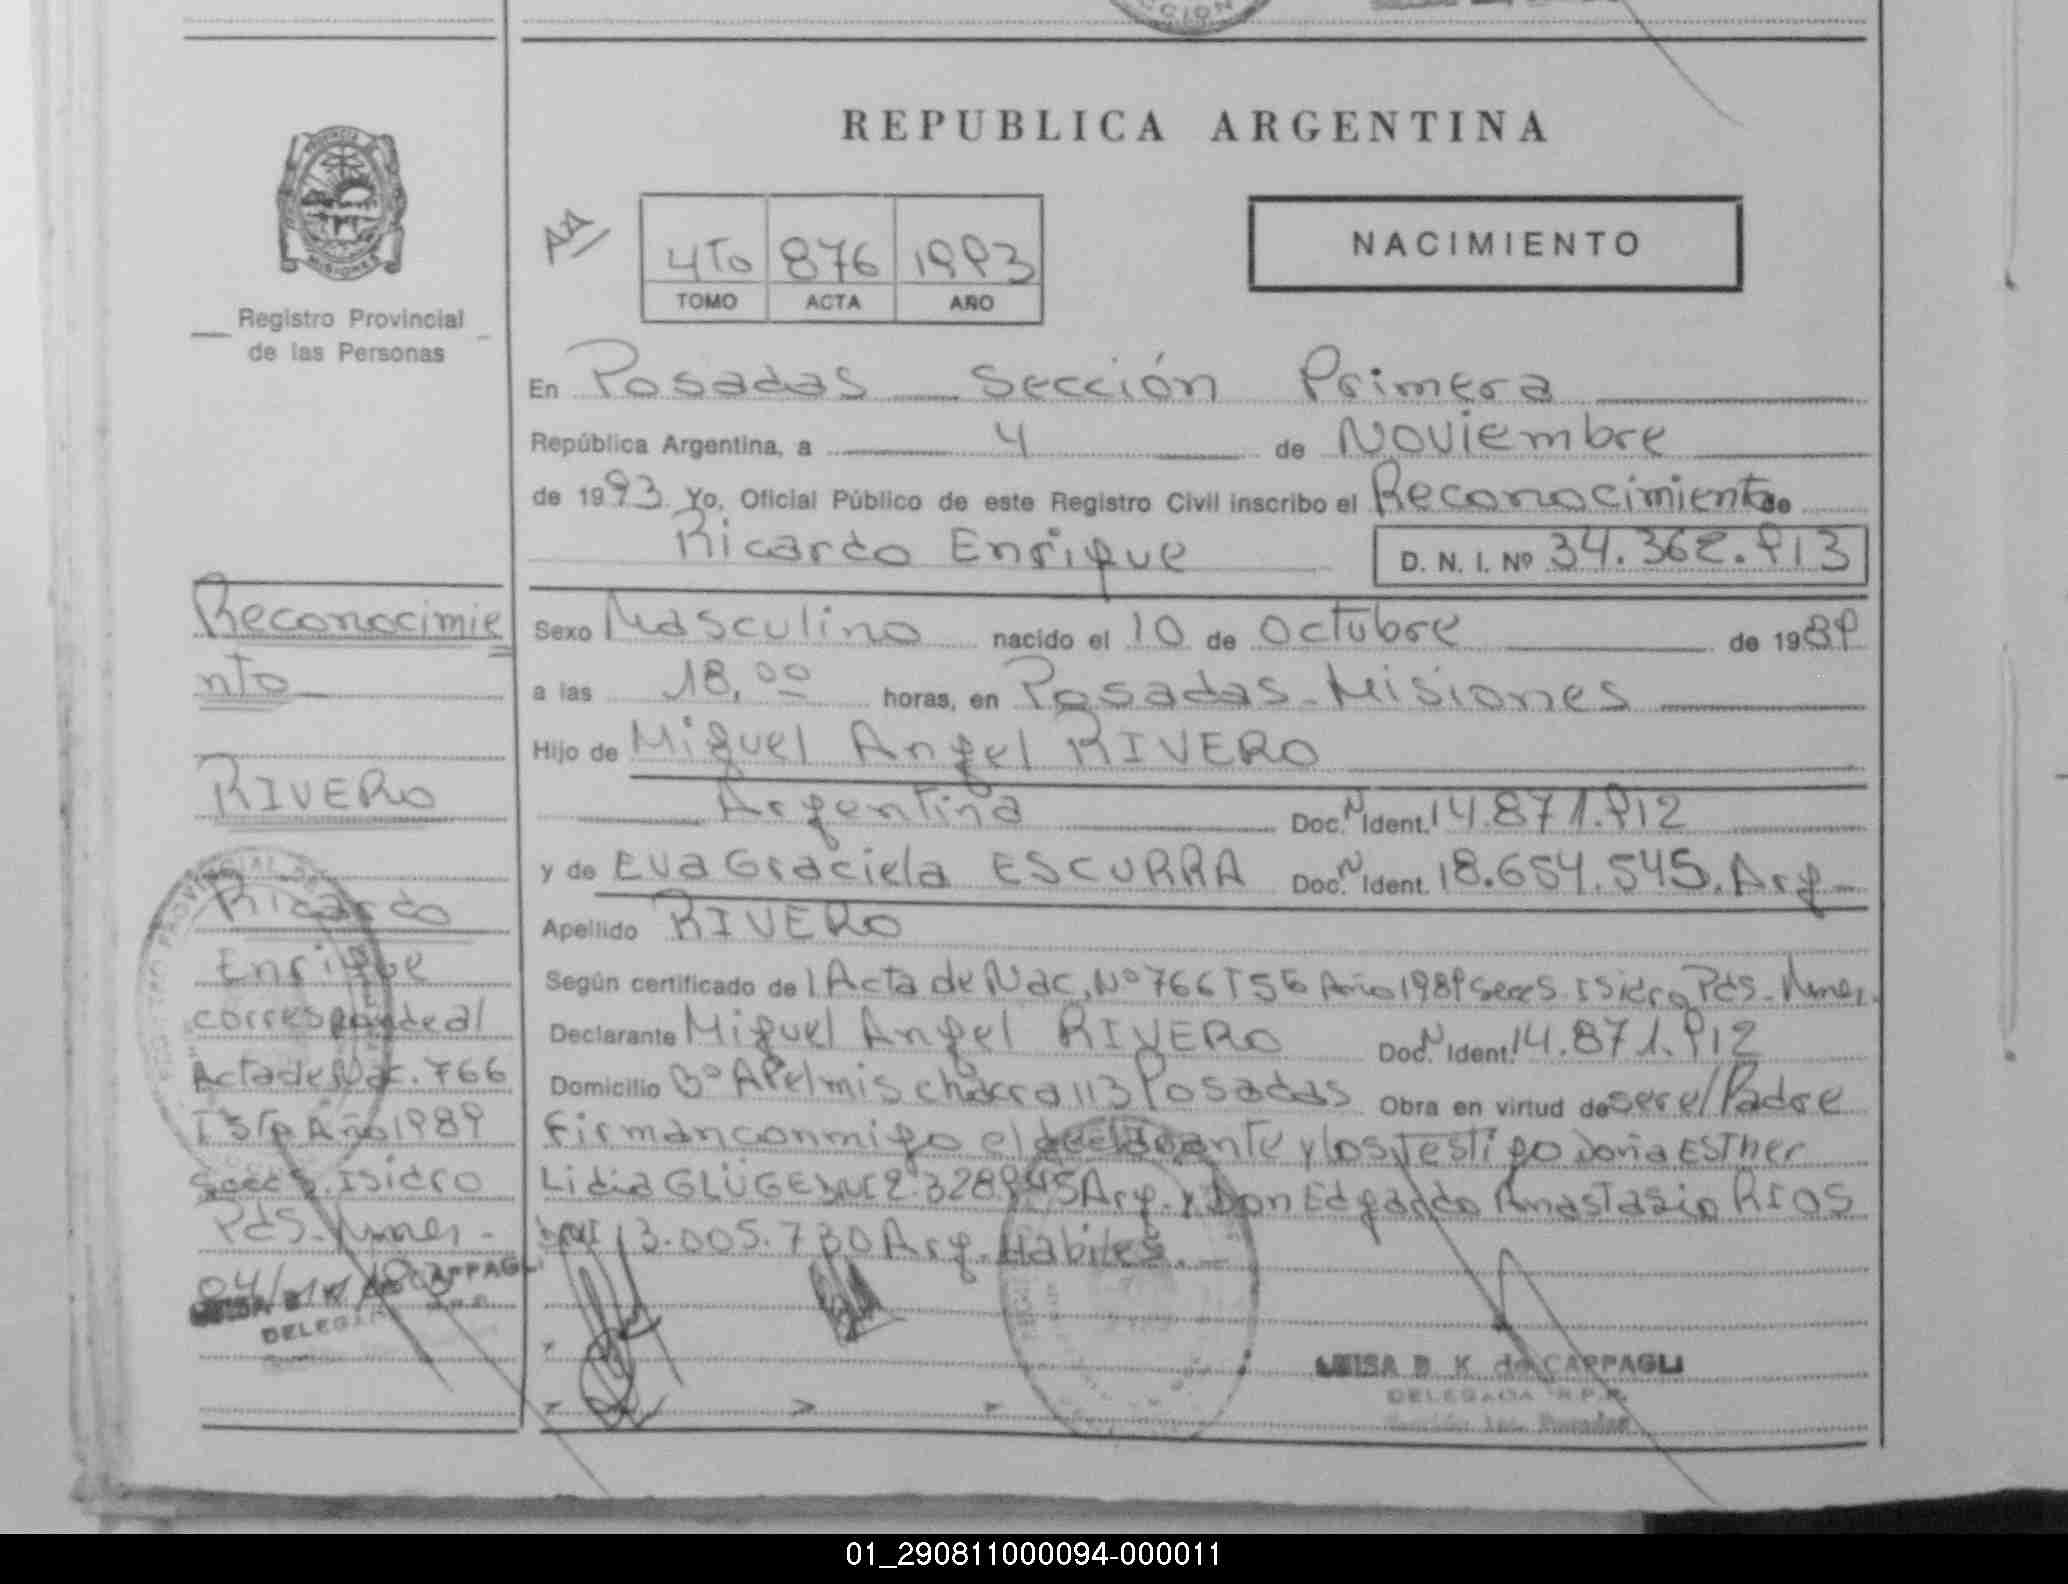 CCION
REPUBLICA ARGENTINA
PROVINCIA
MISIONES
4To 876 1993
TOMO ACTA AÑO
NACIMIENTO
Registro Provincial
de las Personas
En Posadas Sección Primera
República Argentina, a 4 de Noviembre
de 1993. Yo, Oficial Público de este Registro Civil inscribo el Reconocimiento de
Ricardo Enrique
D. N. I. Nº 34.362.913
Sexo Masculino nacido el 10 de Octubre de 1989
a las 18,00 horas, en Posadas - Misiones
Hijo de Miguel Angel RIVERO
Argentina Doc. N Ident. 14.871.912
y de Eva Graciela ESCURRA Doc. N Ident. 18.654.545. Arg
Apellido RIVERO
Según certificado de Acta de Nac. Nº 766 T5 Año 1989 Secc S. Isidro Pds - Mnes.
Declarante Miguel Angel RIVERO Doc. N Ident. 14.871.912
Domicilio Bº APelmis chacra 113 Posadas Obra en virtud de ser el Padre
Firman conmigo el declarante y los Testigo Doña ESTher
Lidia GLÜGE DNI 2.328.945 Arg. y Don Edgardo Anastasio RIOS
DNI 13.005.730 Arg. Habiles. -
Reconocimie
nto
RIVERO
Ricardo
Enrique
corresponde al
Acta de Nac. 766
Año 1989
Secc S. Isidro
Pds - Mnes -
04/11/93
CAPPAGLI
DELEGADA R.P.P.
LUISA B. K. de CAPPAGLI
DELEGADA R.P.P.
Sección 1ra. Posadas
01_290811000094-000011